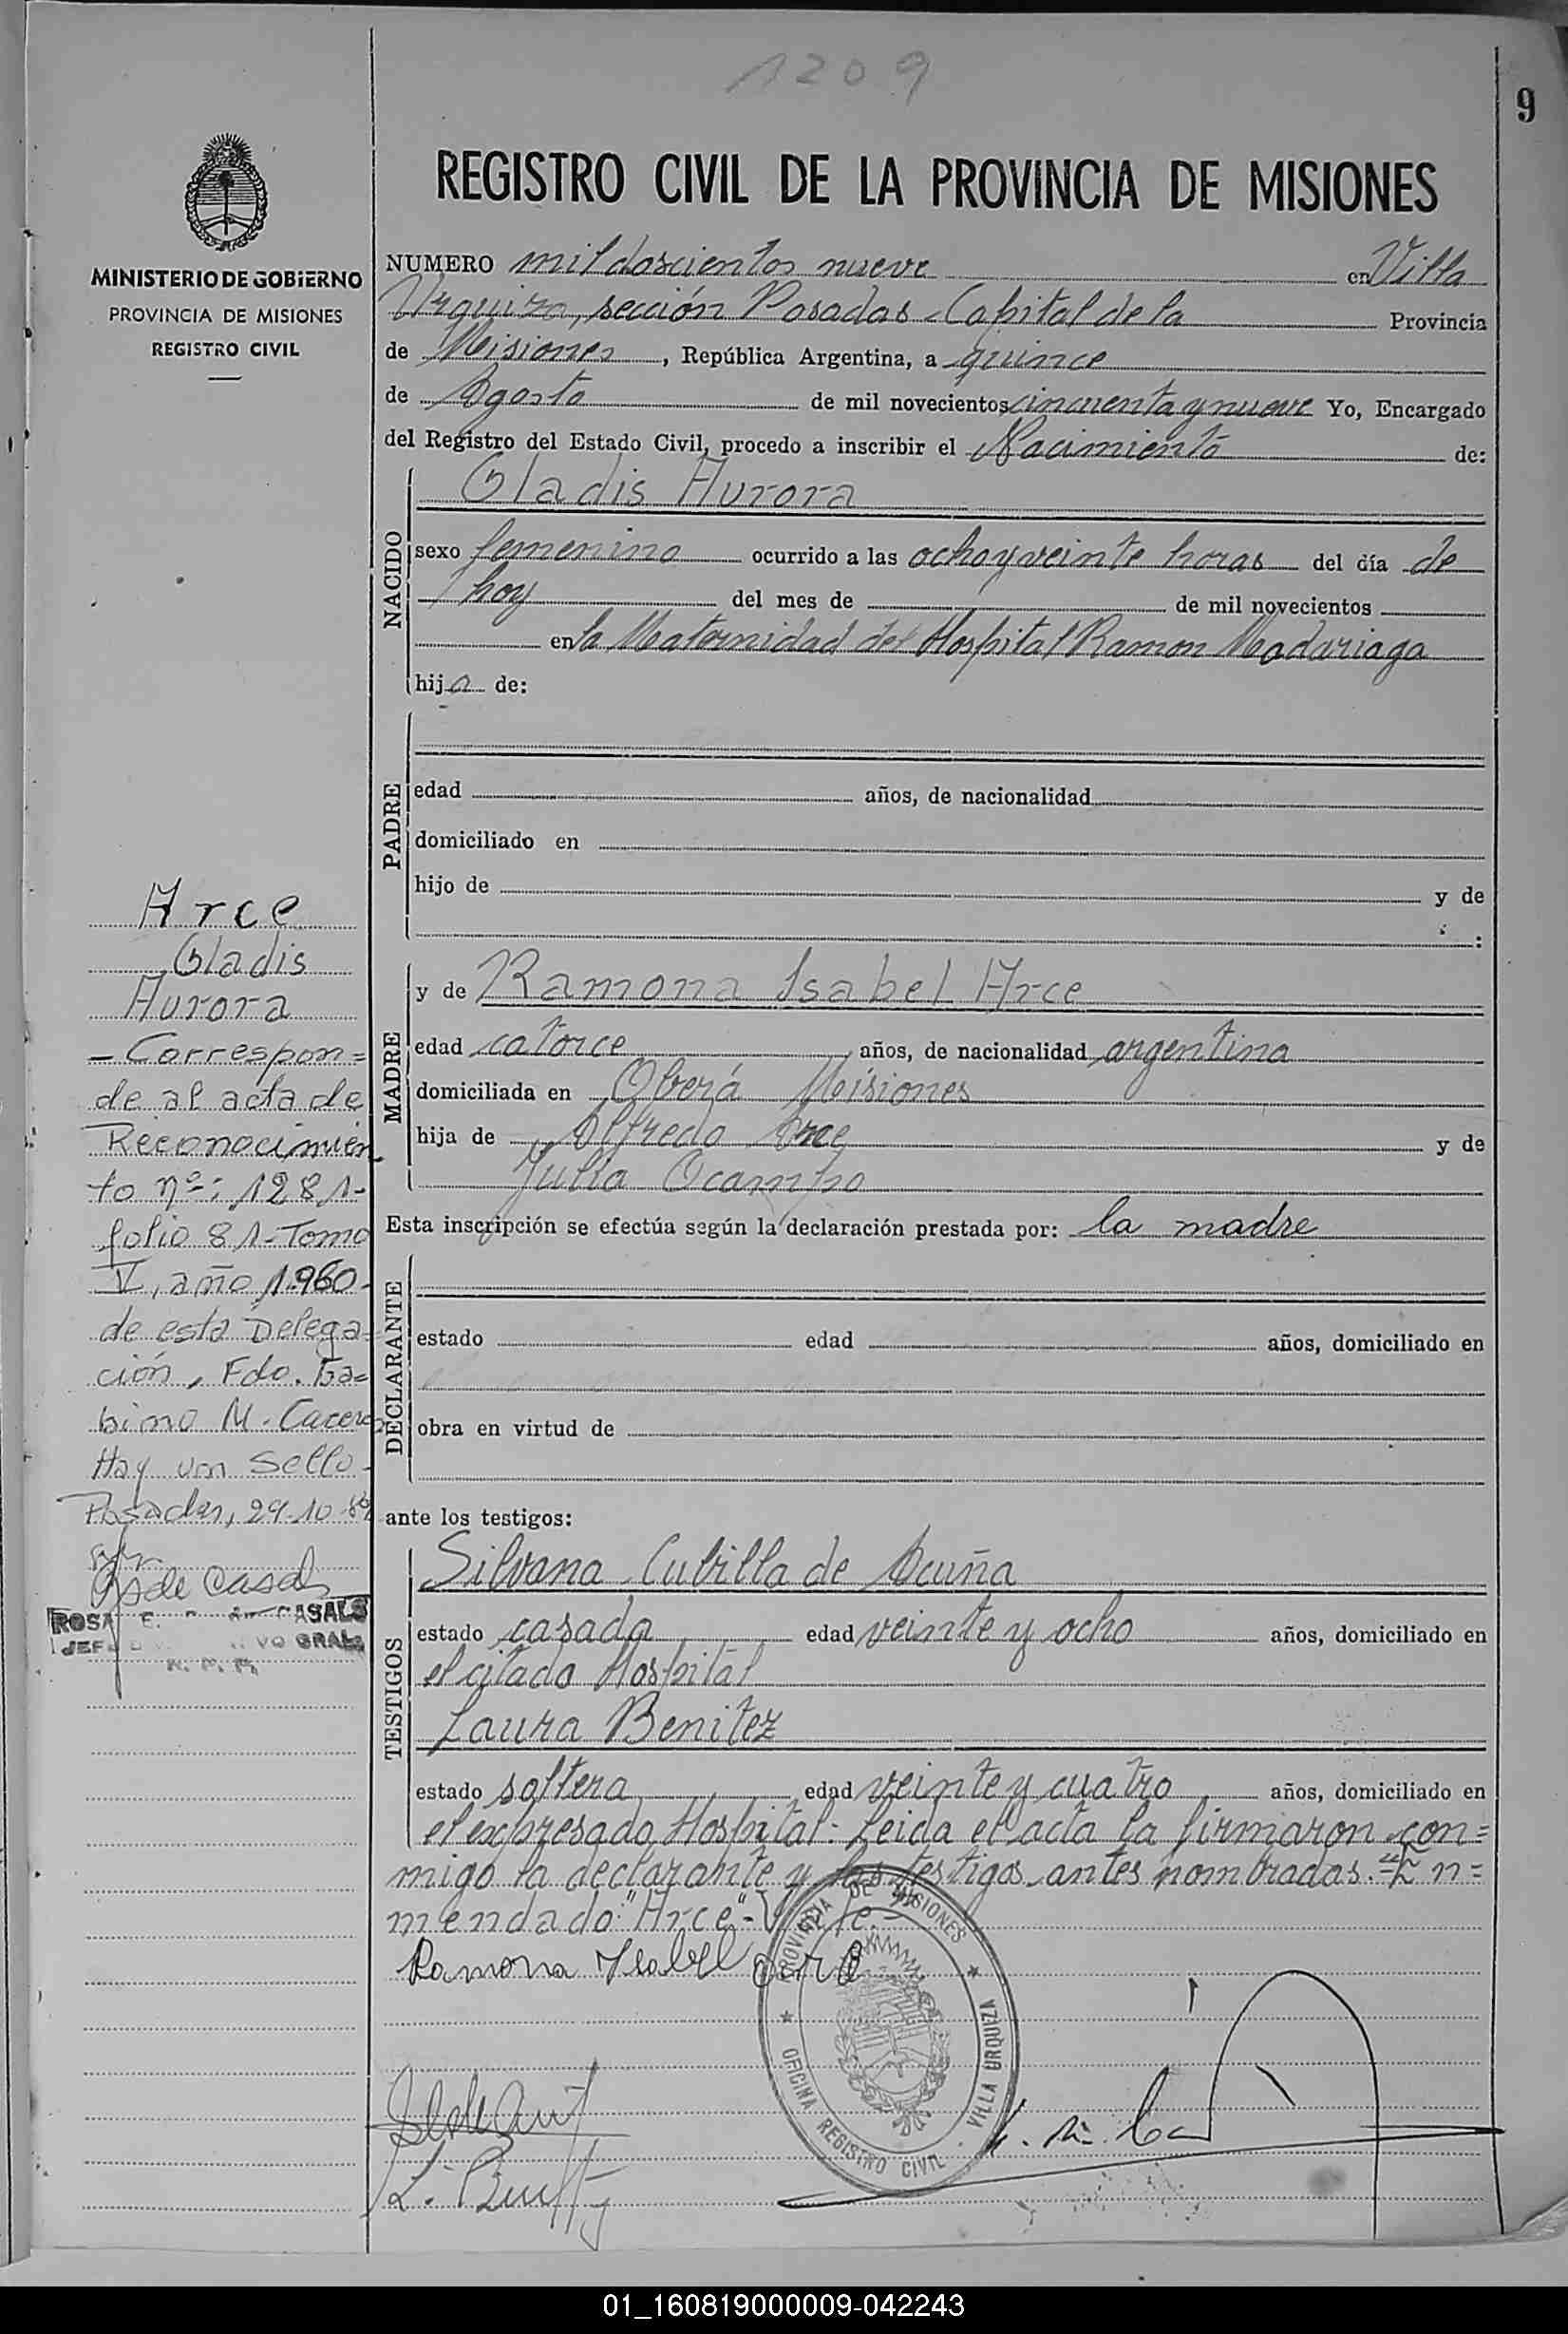 1209
9
MINISTERIO DE GOBIERNO
PROVINCIA DE MISIONES
REGISTRO CIVIL
REGISTRO CIVIL DE LA PROVINCIA DE MISIONES
NUMERO mil doscientos nueve en Villa
Urquiza, sección Posadas - Capital de la Provincia
de Misiones, República Argentina, a quince
de Agosto de mil novecientos cincuenta y nueve Yo, Encargado
del Registro del Estado Civil, procedo a inscribir el Nacimiento de:
NACIDO
Gladis Aurora
sexo femenino ocurrido a las ocho y veinte horas del día de
hoy del mes de de mil novecientos
en la Maternidad del Hospital Ramon Madariaga
hija de:
PADRE
edad años, de nacionalidad
domiciliado en
hijo de y de
:
MADRE
y de Ramona Isabel Arce
edad catorce años, de nacionalidad argentina
domiciliada en Oberá Misiones
hija de Alfredo Arce y de
Julia Ocampo
Esta inscripción se efectúa según la declaración prestada por: la madre
DECLARANTE
estado edad años, domiciliado en
obra en virtud de
ante los testigos:
TESTIGOS
Silvana Cubilla de Acuña
estado casada edad veinte y ocho años, domiciliado en
el citado Hospital
Laura Benitez
estado soltera edad veinte y cuatro años, domiciliado en
el expresado Hospital: Leida el acta la firmaron con=
migo la declarante y las testigos antes nombradas. "En=
mendado "Arce" - Vale.-
Ramona Isabel Arce
PROVINCIA DE MISIONES
OFICINA REGISTRO CIVIL - VILLA URQUIZA
Arce
Gladis
Aurora
- Correspon=
de al acta de
Reconocimien
to nº: 1281-
folio 81- Tomo
V, año 1.960-
de esta Delega=
ción, Fdo. Ga=
bino M. Caceres
Hay un Sello-
Posadas, 29-10-
ROSA E. CASALS
JEFE VO GRAL
01_160819000009-042243